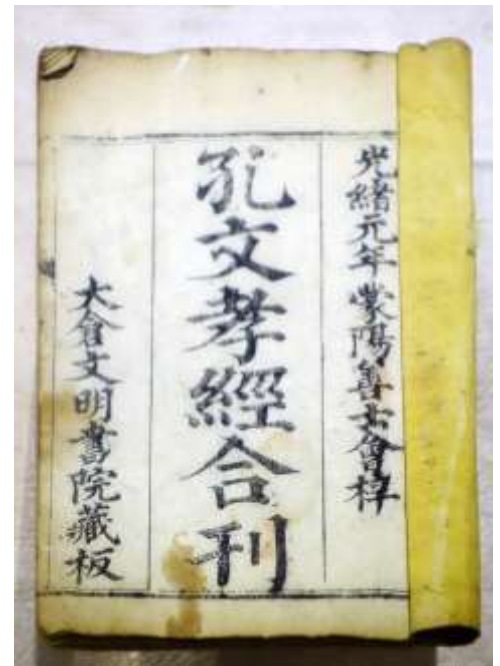 光緒元年蒙陽善士會梓
孔文孝經合刊
大倉文明書院藏板